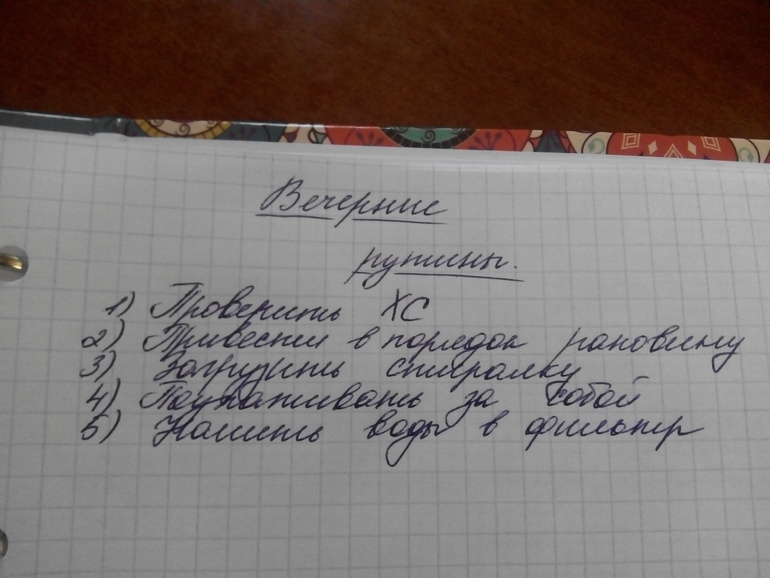 Вечерние
рутины.
1) Проверить ХС
2) Привести в порядок раковину
3) Загрузить стиралку
4) Поухаживать за собой
5) Налить воды в фильтр